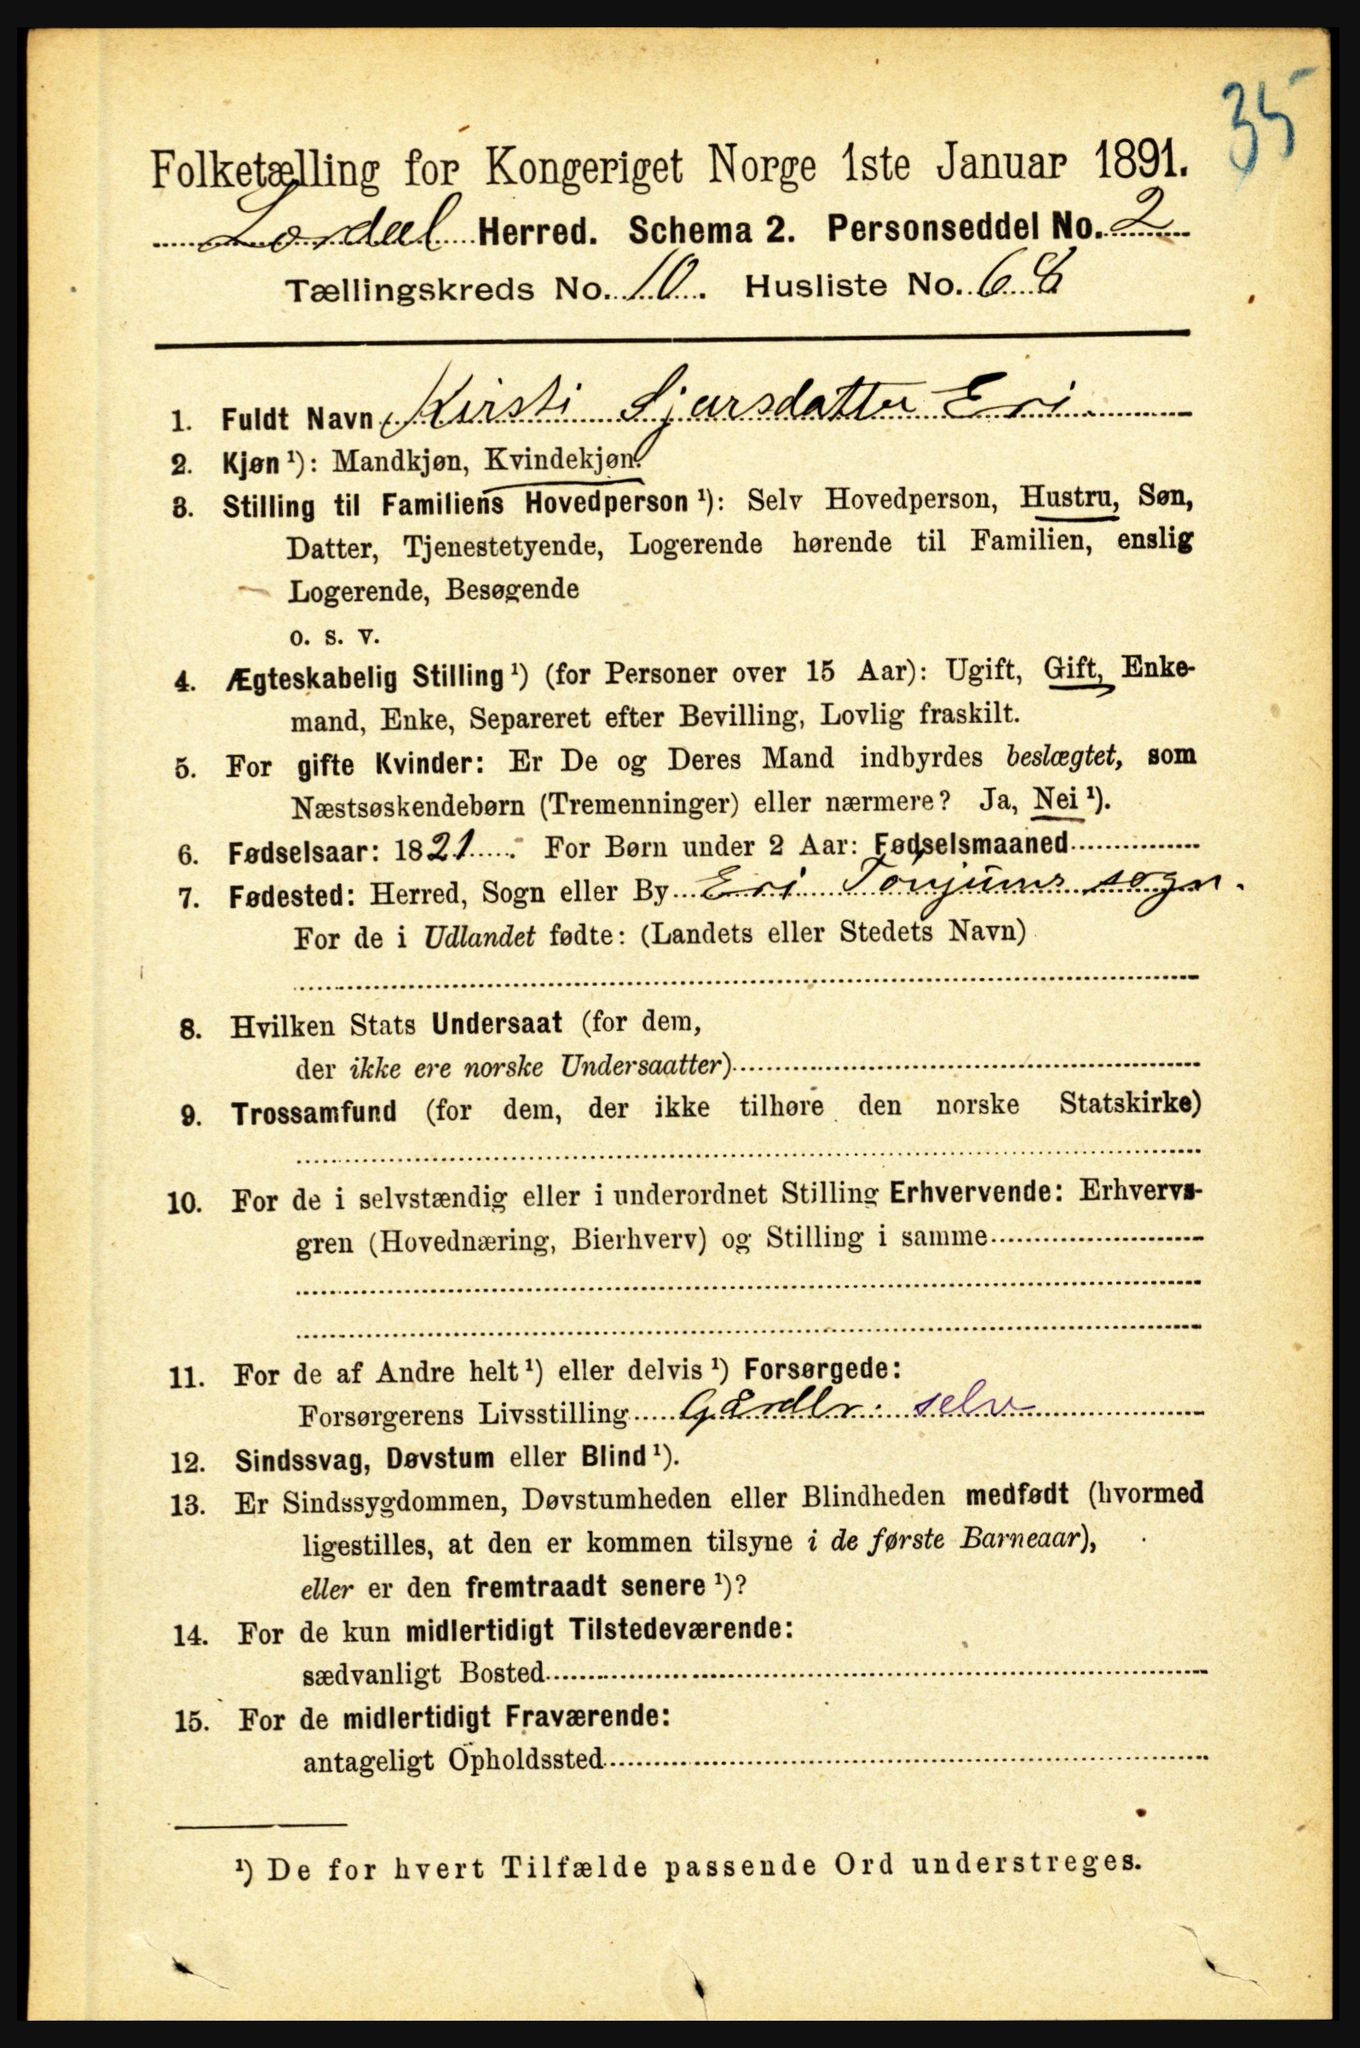 35
Folketælling for Kongeriget Norge 1ste Januar 1891.
Lærdal Herred. Schema 2. Personseddel No. 2
Tællingskreds No. 10. Husliste No. 68
1. Fuldt Navn Kirsti Sjursdatter Eri.
2. Kjøn ¹): Mandkjøn, Kvindekjøn.
3. Stilling til Familiens Hovedperson ¹): Selv Hovedperson, Hustru, Søn,
Datter, Tjenestetyende, Logerende hørende til Familien, enslig
Logerende, Besøgende
o. s. v.
4. Ægteskabelig Stilling ¹) (for Personer over 15 Aar): Ugift, Gift, Enke-
mand, Enke, Separeret efter Bevilling, Lovlig fraskilt.
5. For gifte Kvinder: Er De og Deres Mand indbyrdes beslægtet, som
Næstsøskendebørn (Tremenninger) eller nærmere? Ja, Nei ¹).
6. Fødselsaar: 1821. For Børn under 2 Aar: Fødselsmaaned
7. Fødested: Herred, Sogn eller By Eri Tonjums sogn.
For de i Udlandet fødte: (Landets eller Stedets Navn)
8. Hvilken Stats Undersaat (for dem,
der ikke ere norske Undersaatter)
9. Trossamfund (for dem, der ikke tilhøre den norske Statskirke)
10. For de i selvstændig eller i underordnet Stilling Erhvervende: Erhvervs-
gren (Hovednæring, Bierhverv) og Stilling i samme
11. For de af Andre helt ¹) eller delvis ¹) Forsørgede:
Forsørgerens Livsstilling Gårdbr. selv
12. Sindssvag, Døvstum eller Blind ¹).
13. Er Sindssygdommen, Døvstumheden eller Blindheden medfødt (hvormed
ligestilles, at den er kommen tilsyne i de første Barneaar),
eller er den fremtraadt senere ¹)?
14. For de kun midlertidigt Tilstedeværende:
sædvanligt Bosted
15. For de midlertidigt Fraværende:
antageligt Opholdssted
¹) De for hvert Tilfælde passende Ord understreges.